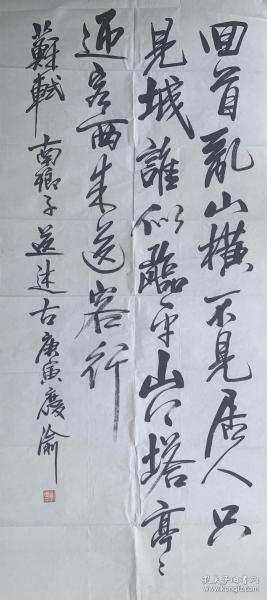 回首亂山橫不見居人只
見城誰似臨平山上塔亭〻
迎客西来送客行
蘇軾 南鄉子送述古 庚寅慶渝